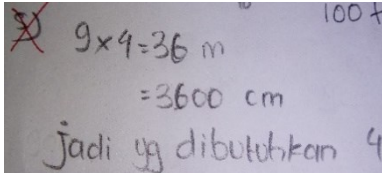 100
3) 9×4=36 m
=3600 cm
jadi yg dibutuhkan 4